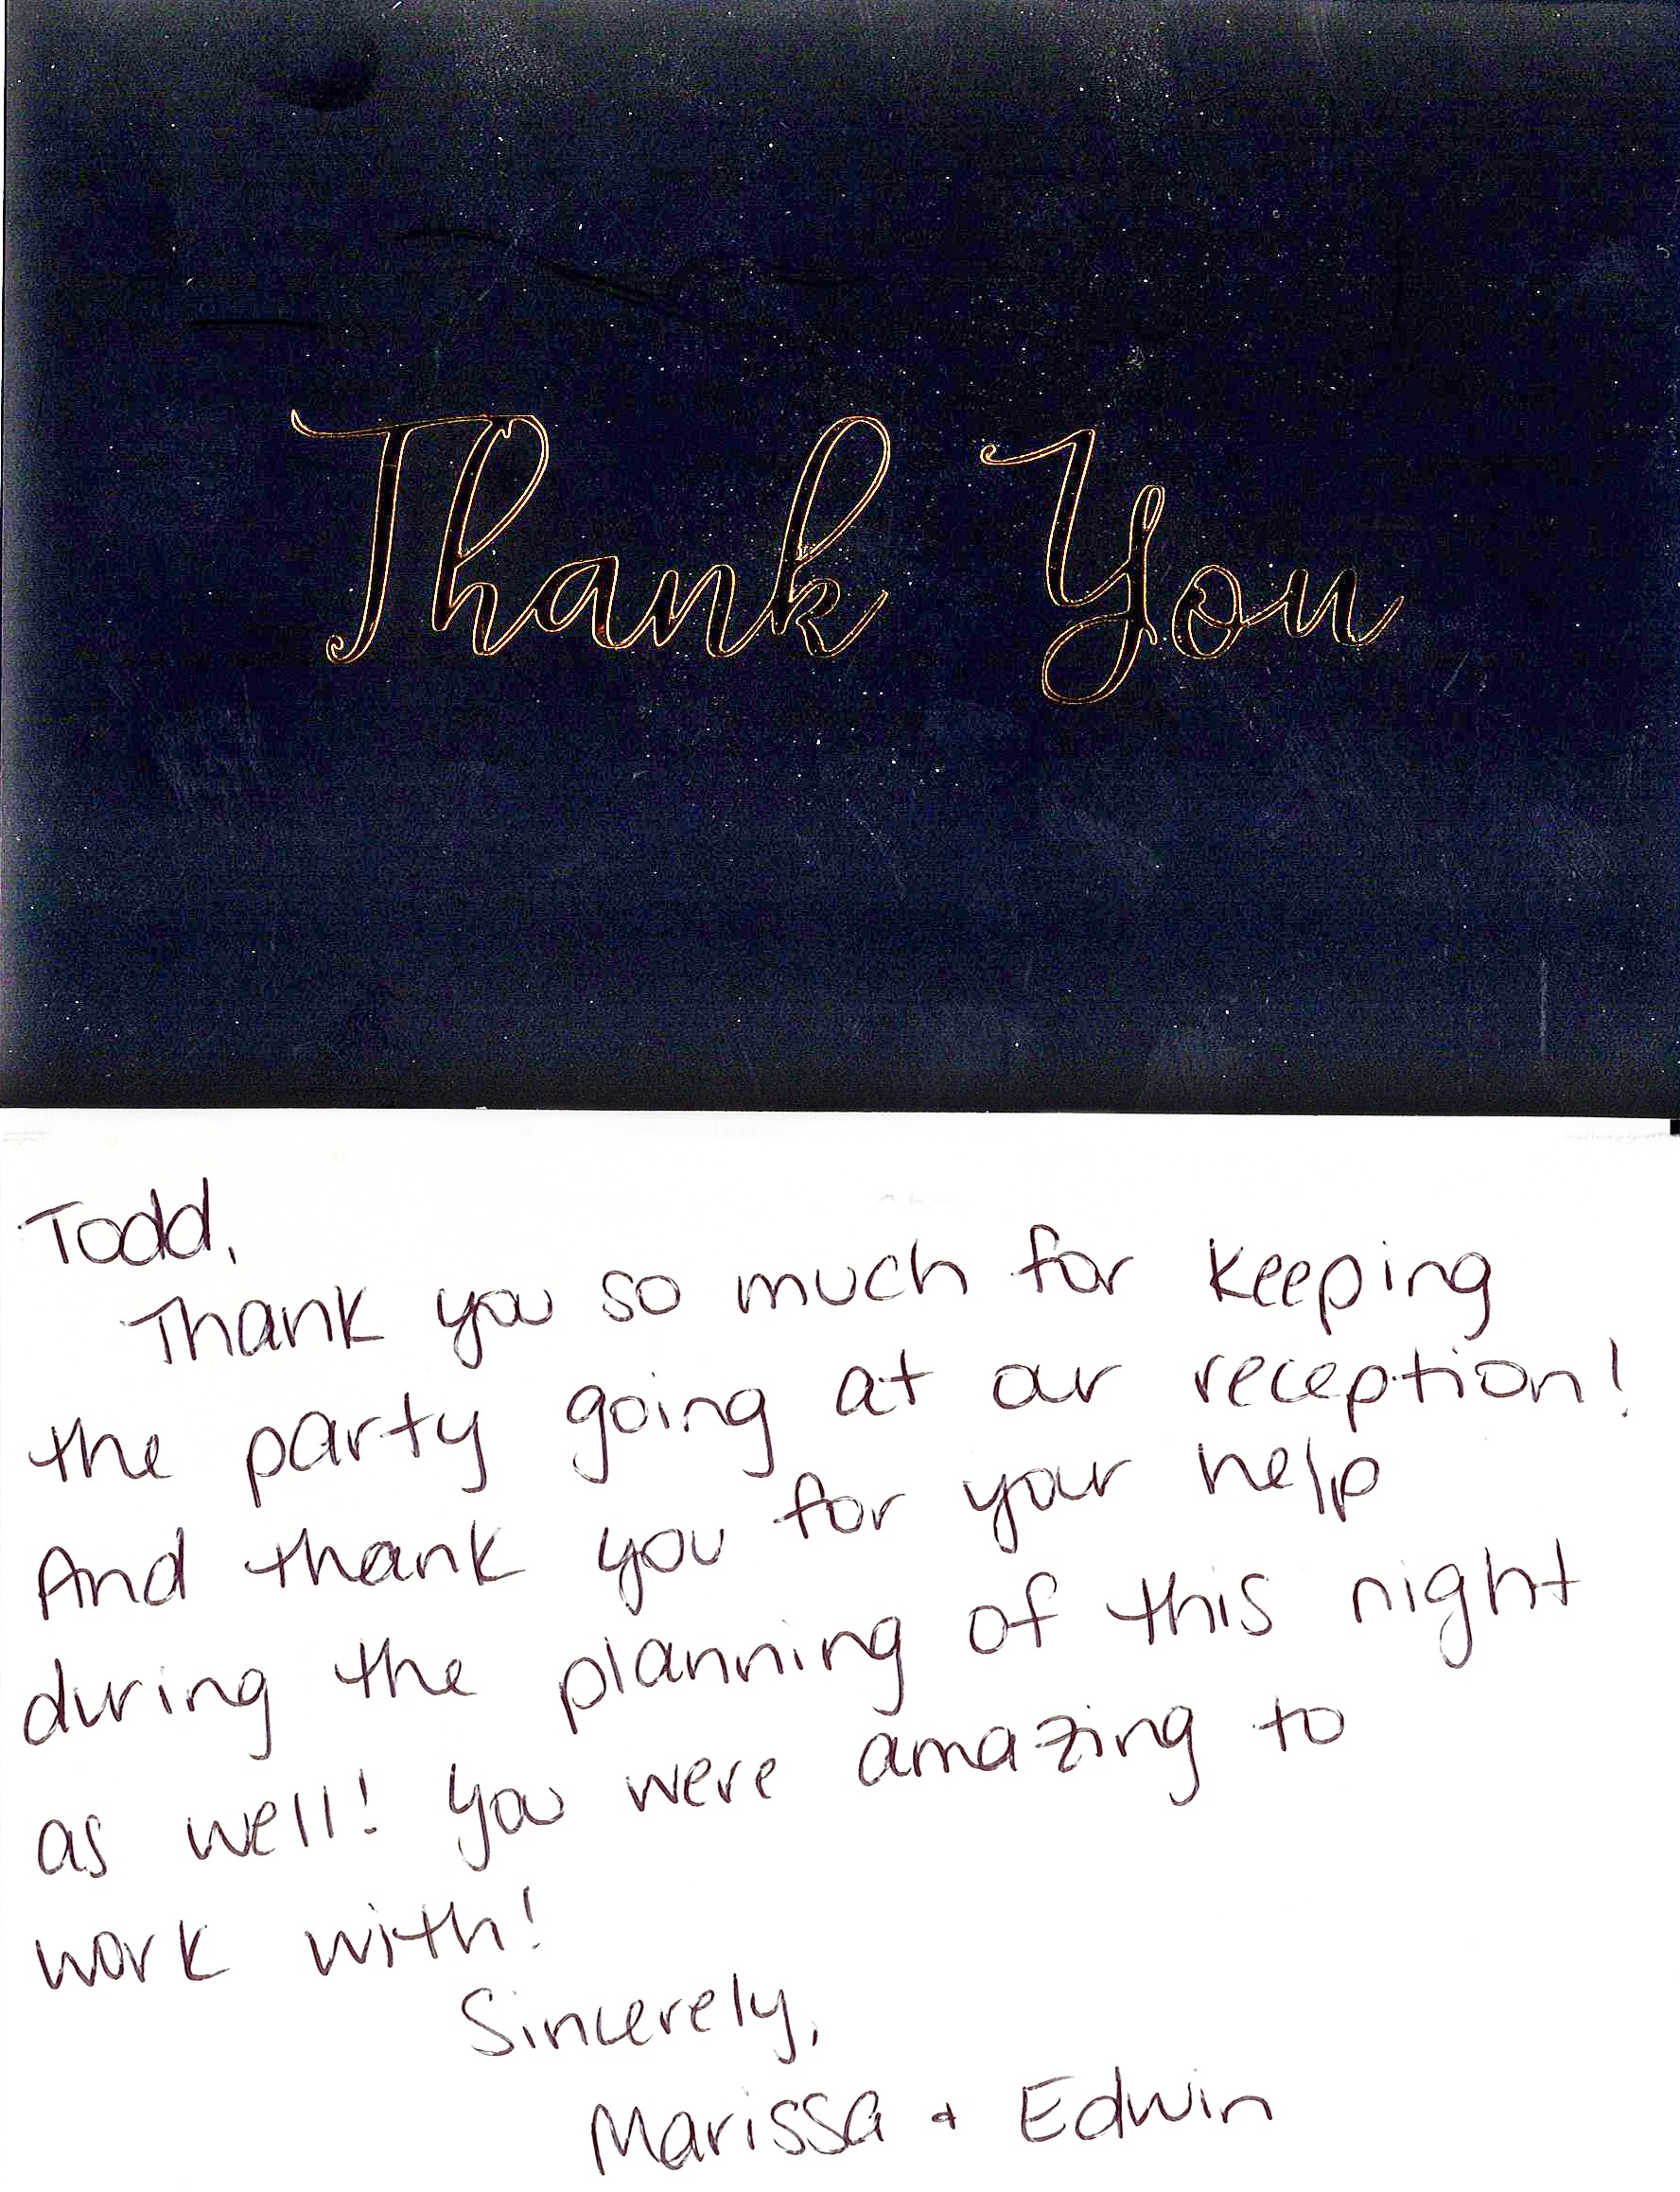 Thank You
Todd,
Thank you so much for keeping
the party going at our reception!
And thank you for your help
during the planning of this night
as well! You were amazing to
work with!
Sincerely,
Marissa + Edwin